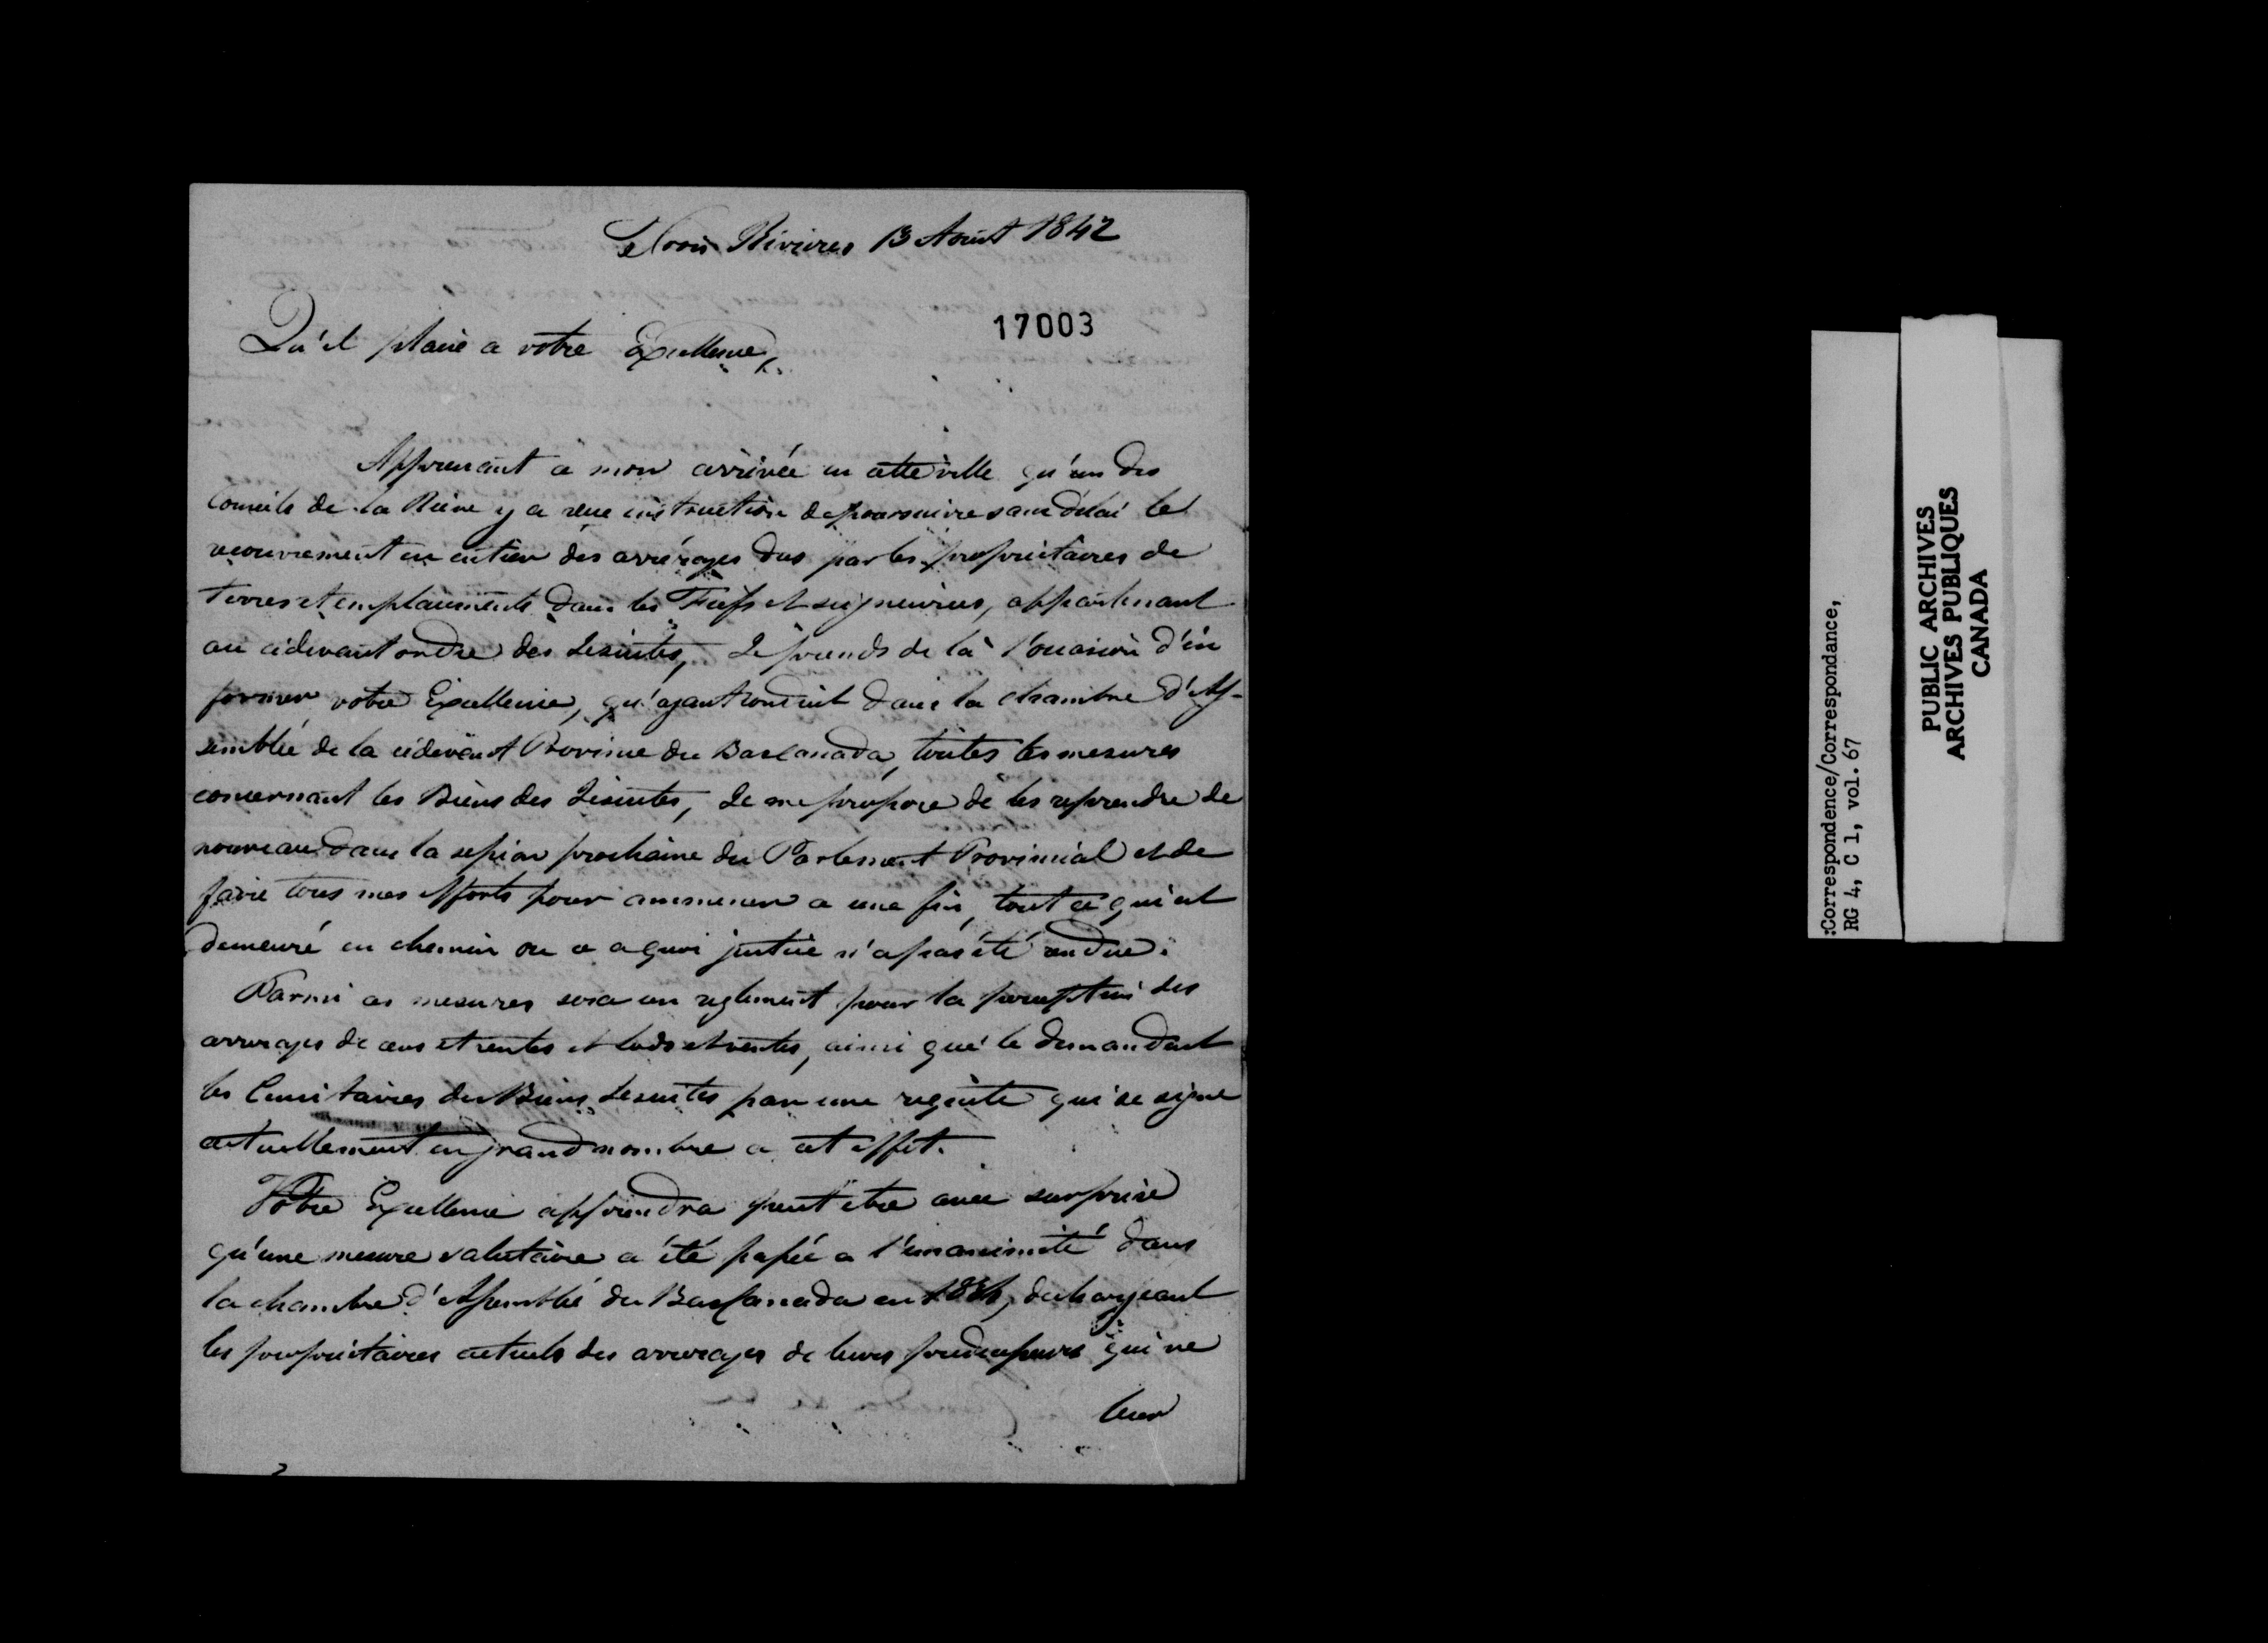 Trois Rivieres 13 Août 1842
17003
Qu'il plaise a votre Excellence,
Apprenant à mon arrivée en cette ville qu'un des
Conseils de la Reine y a reçue instruction de poursuivre sans délai le
recouvrement en entier des arrérages dus par les propriétaires de
Terres et emplacements dans les Fiefs et seigneuries, appartenant
au cidevant ordre des Jesuites, Je prends de là l'occasion d'in
former votre Excellence, qu'ayant conduit dans la chambre d'As-
semblée de la cidevant Province du Bas Canada, toutes les mesures
concernant les Biens des Jésuites, Je me propose de les reprendre de
nouveau dans la session prochaine du Parlement Provincial et de
faire tous mes efforts pour ammener a une fin, tout ce qui est
demeuré en chemin ou a quoi justice n'a pas été rendue.
Parmi ces mesures sera un reglement pour la perception des
arrerages de cens et rentes et lods et ventes, ainsi que le demandent
les Censitaires des Biens Jesuites par une requète qui se signe
actuellement en grand nombre a cet effet.
Votre Excellence apprendra peut etre avec surprise
qu'une mesure salutaire a été passée a l'unanimité dans
la chambre d'Assemblée du Bas Canada en dechargeant
les proprietaires actuels des arrerages de leurs predecesseurs qui ne
leur
:Correspondence/Correspondance,
RG 4, C 1, vol. 67
PUBLIC ARCHIVES
ARCHIVES PUBLIQUES
CANADA